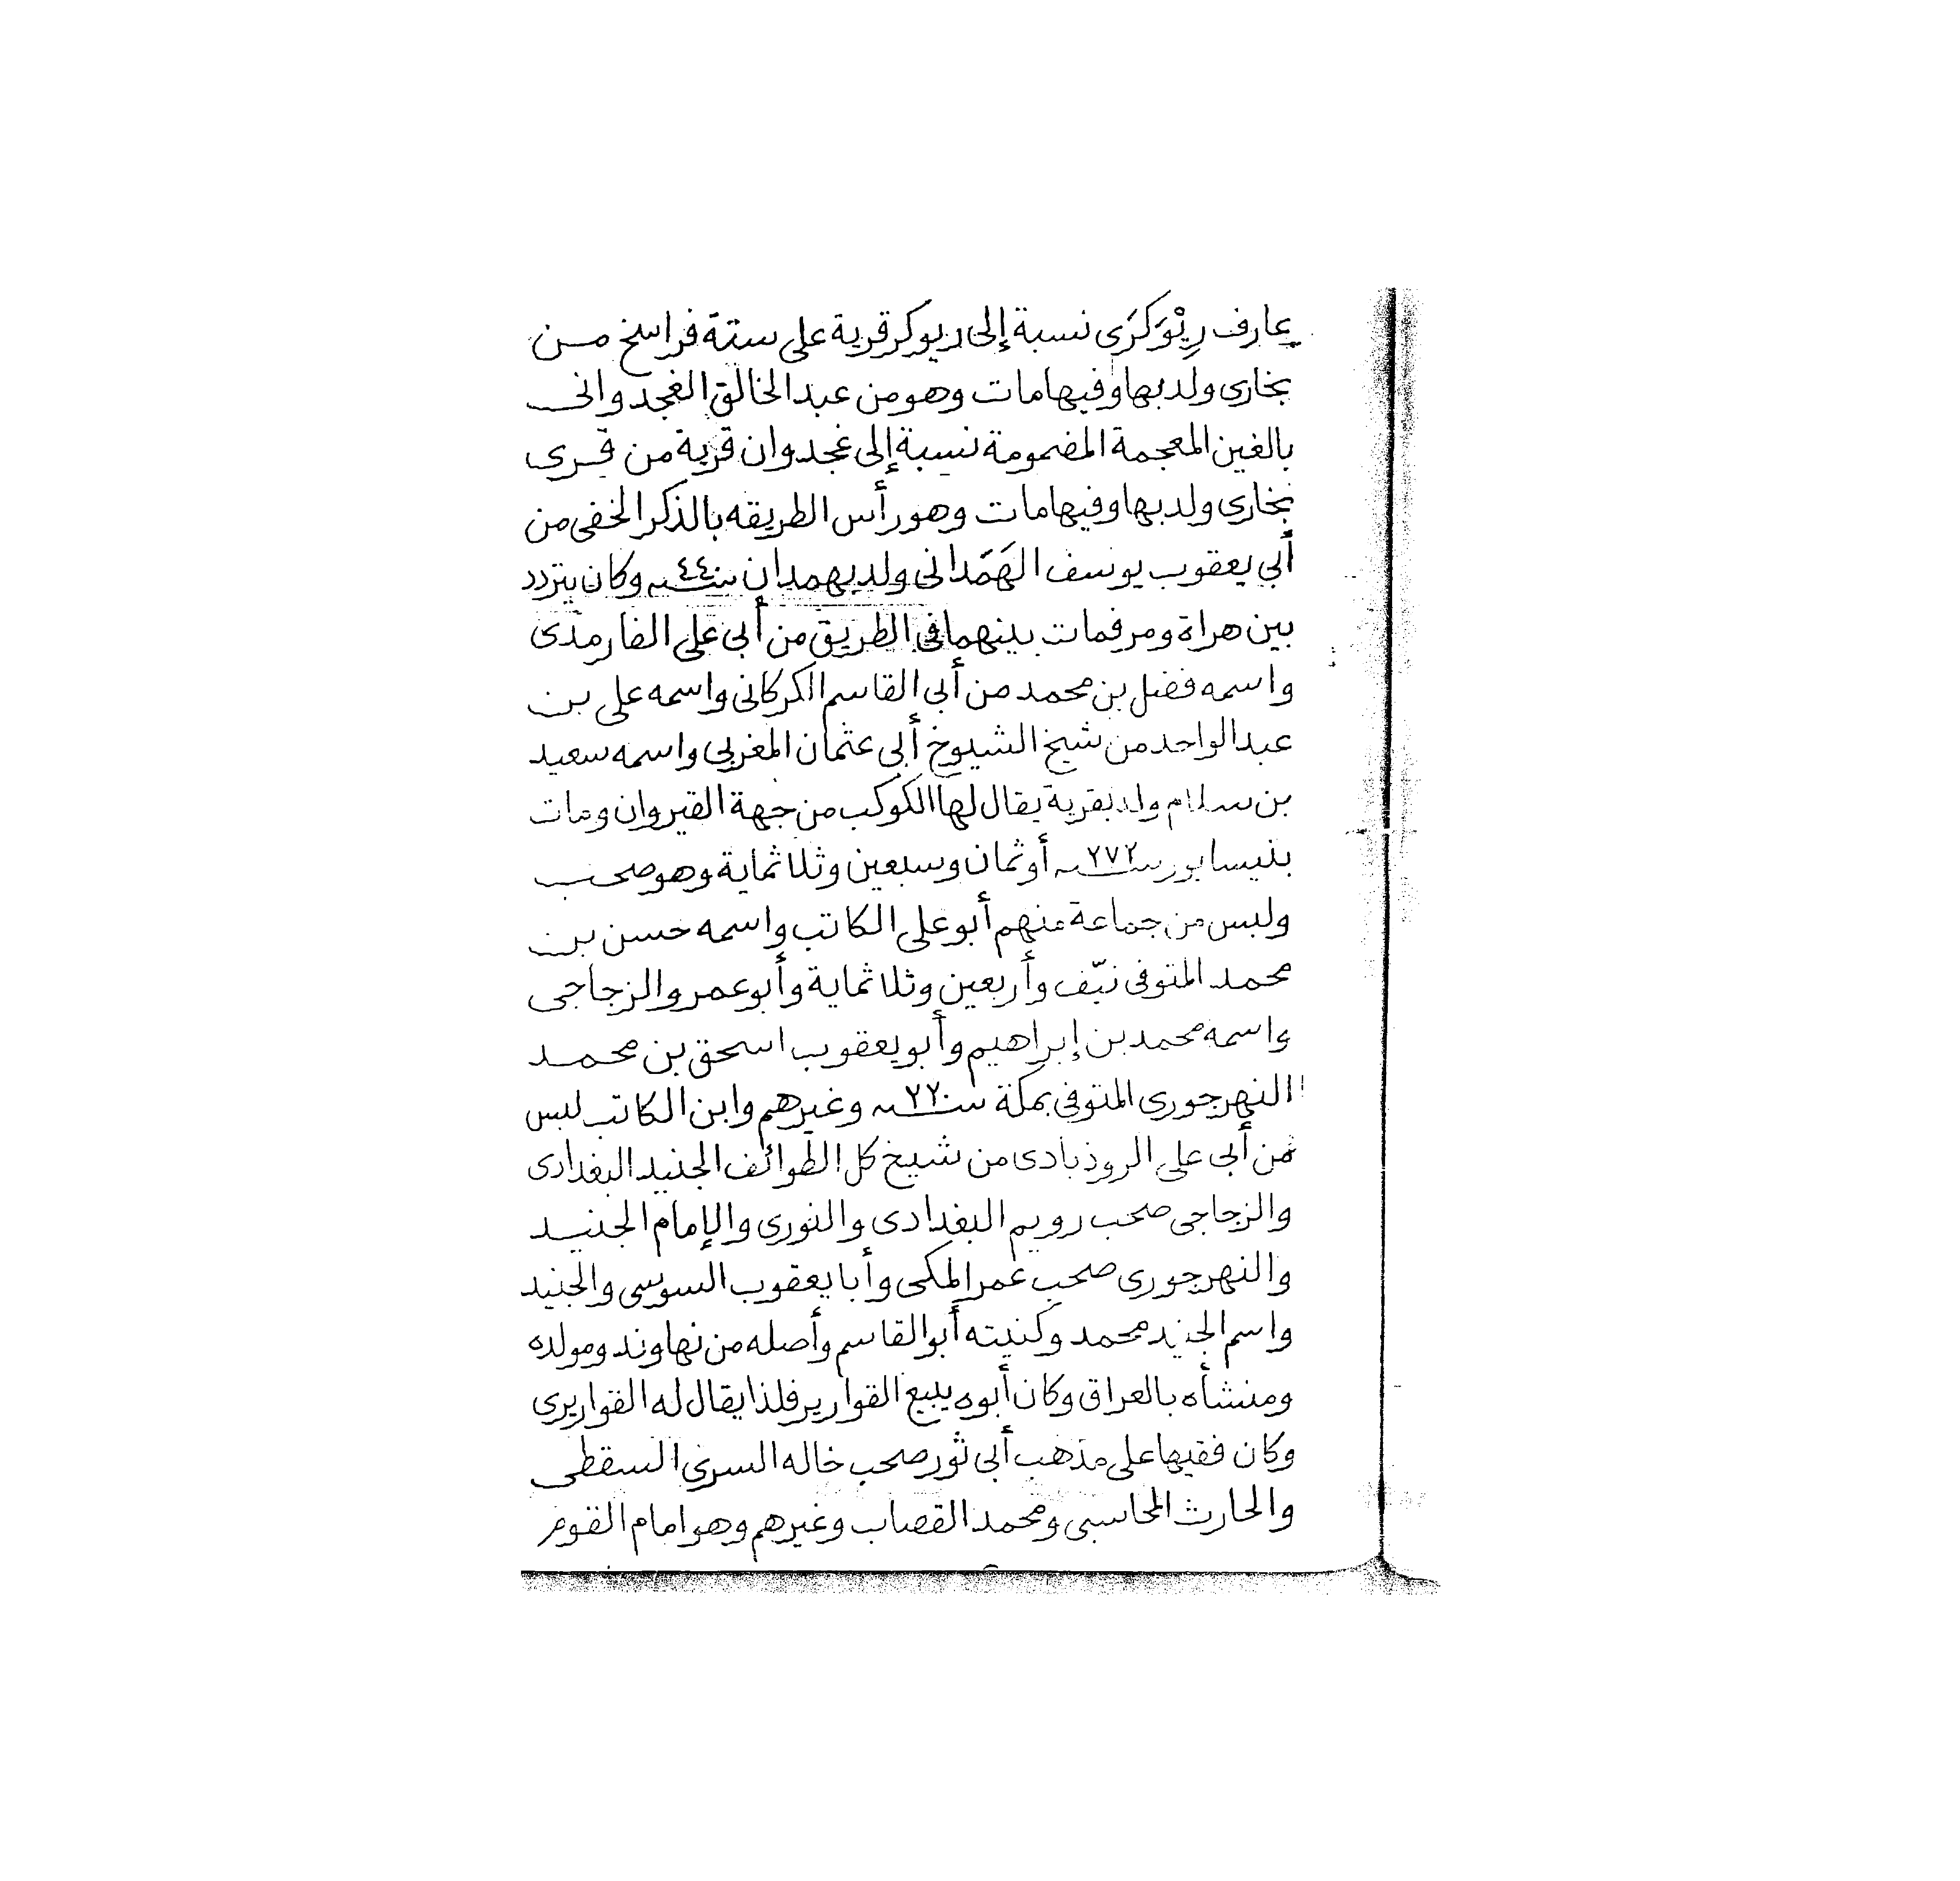 عارف رِيْوَكرَى نسبة إلى ريوكر قرية على ستة فراسخ من
بخارى ولد بها وفيها مات وهو من عبد الخالق الغجدوانى
بالغين المعجمة المضمومة نسبة إلى غجدوان قرية من قرى
بخارى ولد بها وفيها مات وهو رأس الطريقه بالذكر الخفى من
أبي يعقوب يوسف الهَمَدانى ولد بهمدان سنة ٤٤٠ وكان يتردد
بين هراة ومرو فمات بينهما فى الطريق من أبى على الفارمذى
واسمه فضل بن محمد من أبى القاسم الكركانى واسمه على بن
عبد الواحد من شيخ الشيوخ أبى عثمان المغربي واسمه سعيد
بن سلام ولد بقرية يقال لها الكوكب من جهة القيروان ومات
بنيسابور سنة ٢٧٢ أو ثمان وسبعين وثلاثماية وهو صحب
ولبس من جماعة منهم أبو على الكاتب واسمه حسن بن
محمد المتوفى نيّف وأربعين وثلاثماية وأبو عمرو الزجاجى
واسمه محمد بن إبراهيم وأبو يعقوب اسحق بن محمد
النهرجورى المتوفى بمكة سنة ٢٢٠ وغيرهم وابن الكاتب لبس
من أبى على الروذبادى من شيخ كل الطوائف الجنيد البغدادى
والزجاجى صحب رويم البغدادى والنورى والإمام الجنيد
والنهرجورى صحب عمر المكى وأبا يعقوب السوسى والجنيد
واسم الجنيد محمد وكنيته أبو القاسم وأصله من نهاوند ومولده
ومنشأه بالعراق وكان أبوه يبيع القوارير فلذا يقال له القواريرى
وكان فقيها على مذهب أبى ثور صحب خاله السرى السقطى
والحارث المحاسبى ومحمد القصاب وغيرهم وهو امام القوم